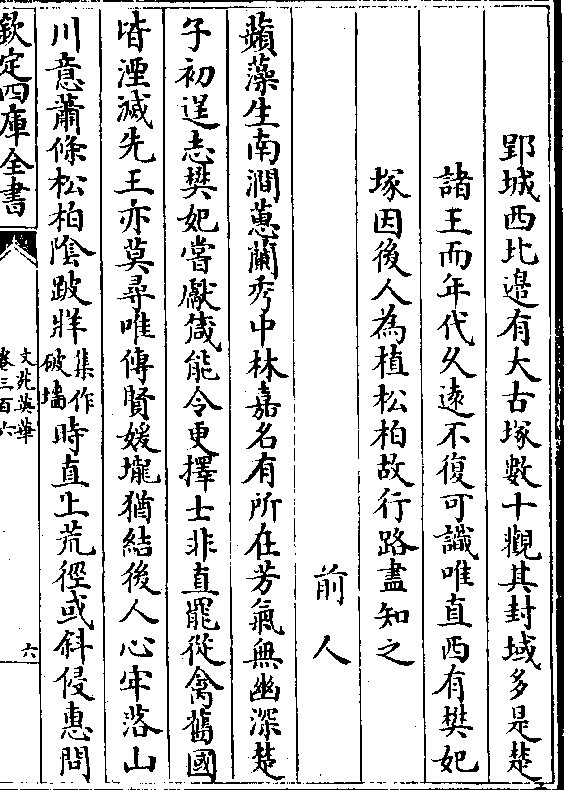 郢城西北邉有大古塚數十觀其封域多是楚
諸王而年代乆逺不復可識唯直西有樊妃
塚因後人為植松柏故行路盡知之
前人
蘋藻生南澗蕙蘭秀中林嘉名有所在芳氣無幽深楚
子初逞志樊妃嘗獻箴能令更擇士非直罷從禽舊國
皆湮滅先王亦莫尋唯傳賢媛壠猶結後人心牢落山
川意蕭條松柏隂跛牂集作破墻時直上荒徑或斜侵惠問
欽定四庫全書
文苑英華
卷三百六
六